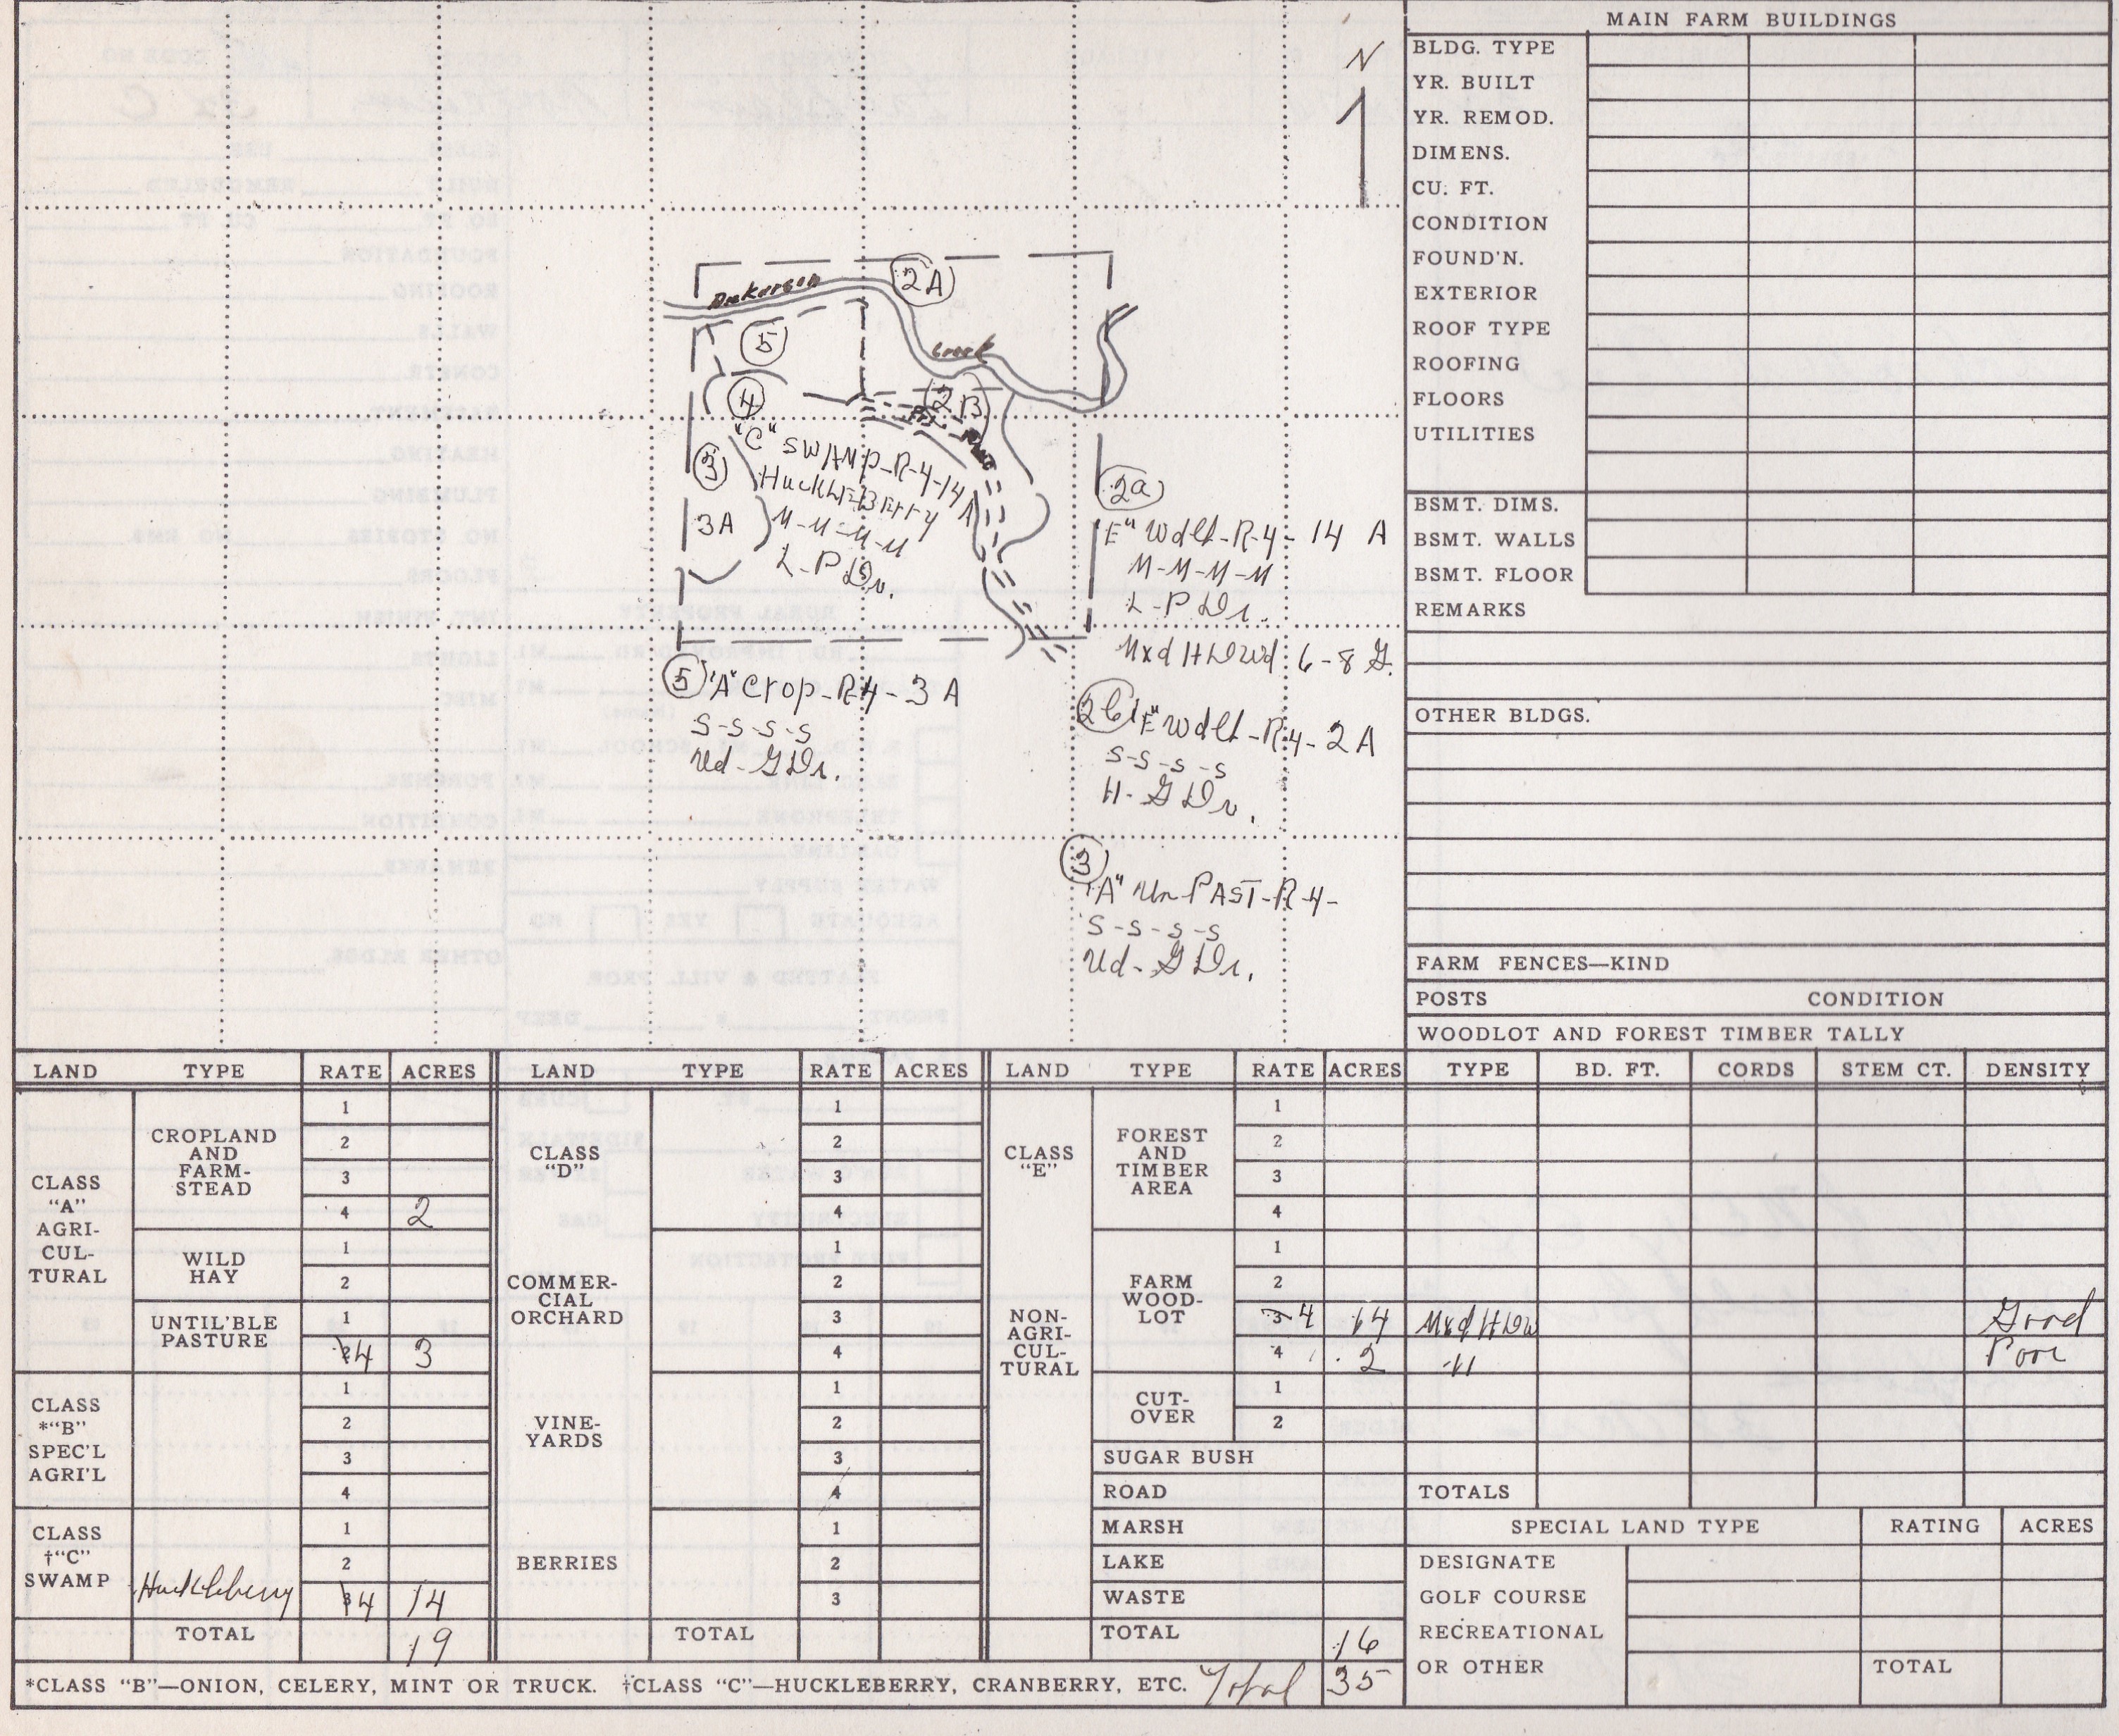 N
Dickerson
2A
5
Creek
4
2B
"C" SWAMP-R-4-14 A
HUCKLEBERRY
M-M-M-M
L-P Dr.
3
3A
2a
"E" Wdlt-R-4-14 A
M-M-M-M
L-P Dr.
Mxd HDwd 6-8 G.
5 "A" Crop-R4-3 A
S-S-S-S
Ud-G Dr.
2b "E" Wdlt-R-4-2 A
S-S-S-S
H-G Dr.
3
"A" Un PAST-R-4-
S-S-S-S
Ud-G Dr.
MAIN FARM BUILDINGS
BLDG. TYPE
YR. BUILT
YR. REMOD.
DIMENS.
CU. FT.
CONDITION
FOUND'N.
EXTERIOR
ROOF TYPE
ROOFING
FLOORS
UTILITIES
BSMT. DIMS.
BSMT. WALLS
BSMT. FLOOR
REMARKS
OTHER BLDGS.
FARM FENCES—KIND
POSTS CONDITION
WOODLOT AND FOREST TIMBER TALLY
LAND TYPE RATE ACRES LAND TYPE RATE ACRES LAND TYPE RATE ACRES TYPE BD. FT. CORDS STEM CT. DENSITY
CLASS
"A"
AGRI-
CUL-
TURAL
CROPLAND
AND
FARM-
STEAD
1
2
3
4 2
WILD
HAY
1
2
UNTIL'BLE
PASTURE
1
4 3
CLASS
*"B"
SPEC'L
AGRI'L
1
2
3
4
CLASS
†"C"
SWAMP
Huckleberry
1
2
3 4 14
TOTAL 19
CLASS
"D"
COMMER-
CIAL
ORCHARD
VINE-
YARDS
BERRIES
1
2
3
4
1
2
3
4
1
2
3
4
1
2
3
TOTAL
CLASS
"E"
NON-
AGRI-
CUL-
TURAL
FOREST
AND
TIMBER
AREA
1
2
3
4
FARM
WOOD-
LOT
1
2
3 4 14 Mxd HDw Good
4 2 -11 Poor
CUT-
OVER
1
2
SUGAR BUSH
ROAD
MARSH
LAKE
WASTE
TOTAL 16
TOTALS
SPECIAL LAND TYPE RATING ACRES
DESIGNATE
GOLF COURSE
RECREATIONAL
OR OTHER
TOTAL
*CLASS "B"—ONION, CELERY, MINT OR TRUCK. †CLASS "C"—HUCKLEBERRY, CRANBERRY, ETC. Total 35